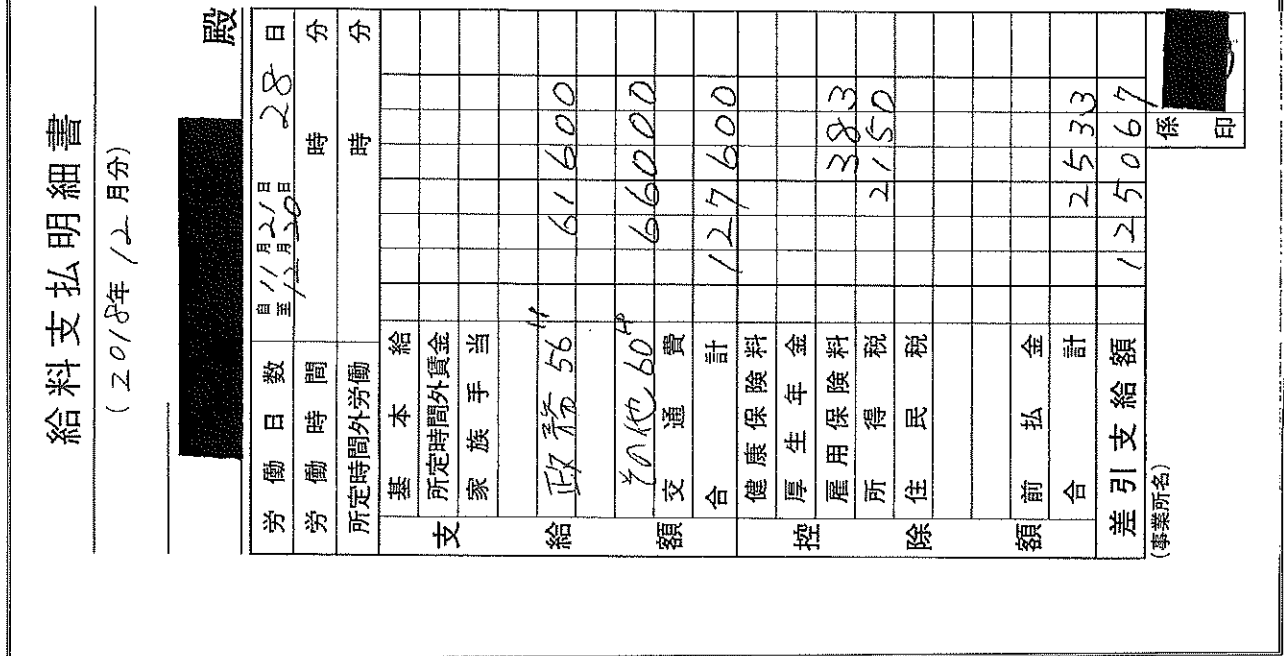 給料支払明細書
(2018年12月分)
殿
労働日数 自11月21日 至12月20日 28日
労働時間 時 分
所定時間外労働 時 分
支給額
基本給
所定時間外賃金
家族手当
政務56H 61600
その他60H 66000
交通費
合計 127600
控除額
健康保険料
厚生年金
雇用保険料 383
所得税 2150
住民税
前払金
合計 2533
差引支給額 125067
(事業所名)
係印